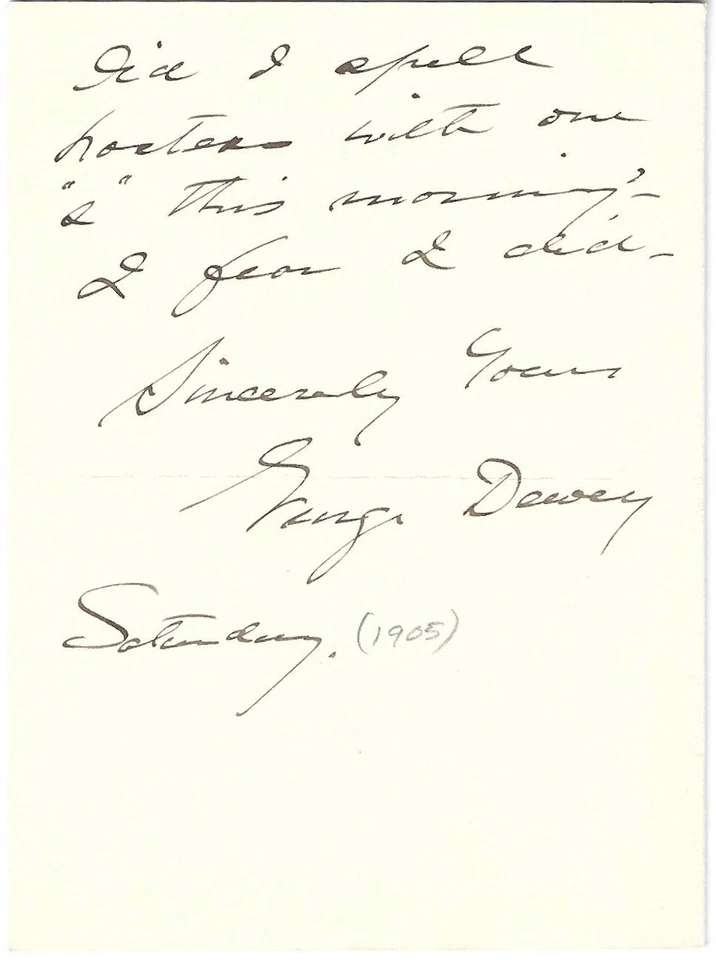 Did I spell
hostess with one
"s" this morning?-
I fear I did-
Sincerely Yours
George Dewey
Saturday. (1905)